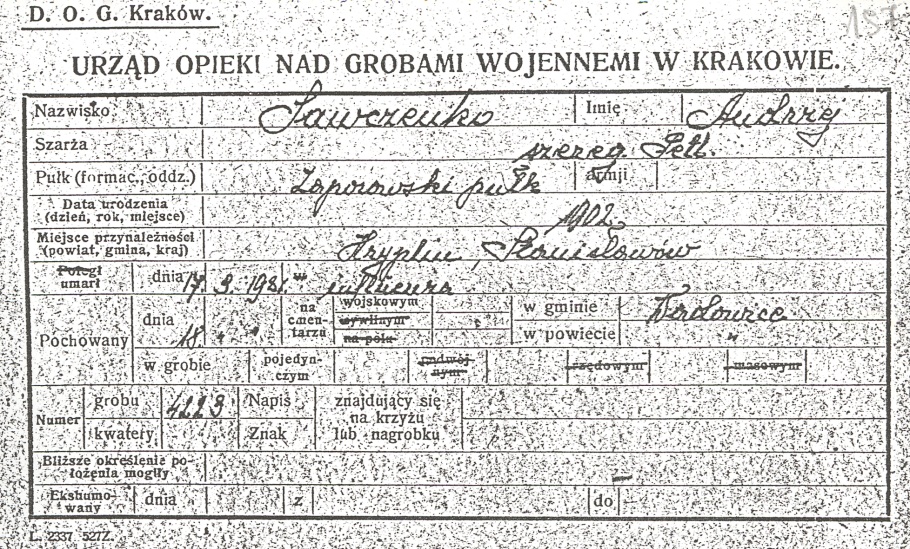 D. O. G. Kraków.
137
URZĄD OPIEKI NAD GROBAMI WOJENNEMI W KRAKOWIE.
Nazwisko Sawczenko Imię Andrzej
Szarża szereg. Petl.
Pułk (formac., oddz.) Zaporowski pułk armji
Data urodzenia
(dzień, rok, miejsce) 1902
Miejsce przynależności
(powiat, gmina, kraj) Hryplin, Stanisławów
Poległ
umarł dnia 17. 3. 1921. w influenza
Pochowany dnia 18. " " na cmen-
tarzu wojskowym
cywilnym
na polu w gminie Wadowice
w powiecie "
w grobie pojedyn-
czym podwój-
nym rzędowym masowym
Numer grobu 4223 Napis znajdujący się
na krzyżu
lub nagrobku
kwatery Znak
Bliższe określenie po-
łożenia mogiły
Ekshumo-
wany dnia z do
L. 2337 527Z.